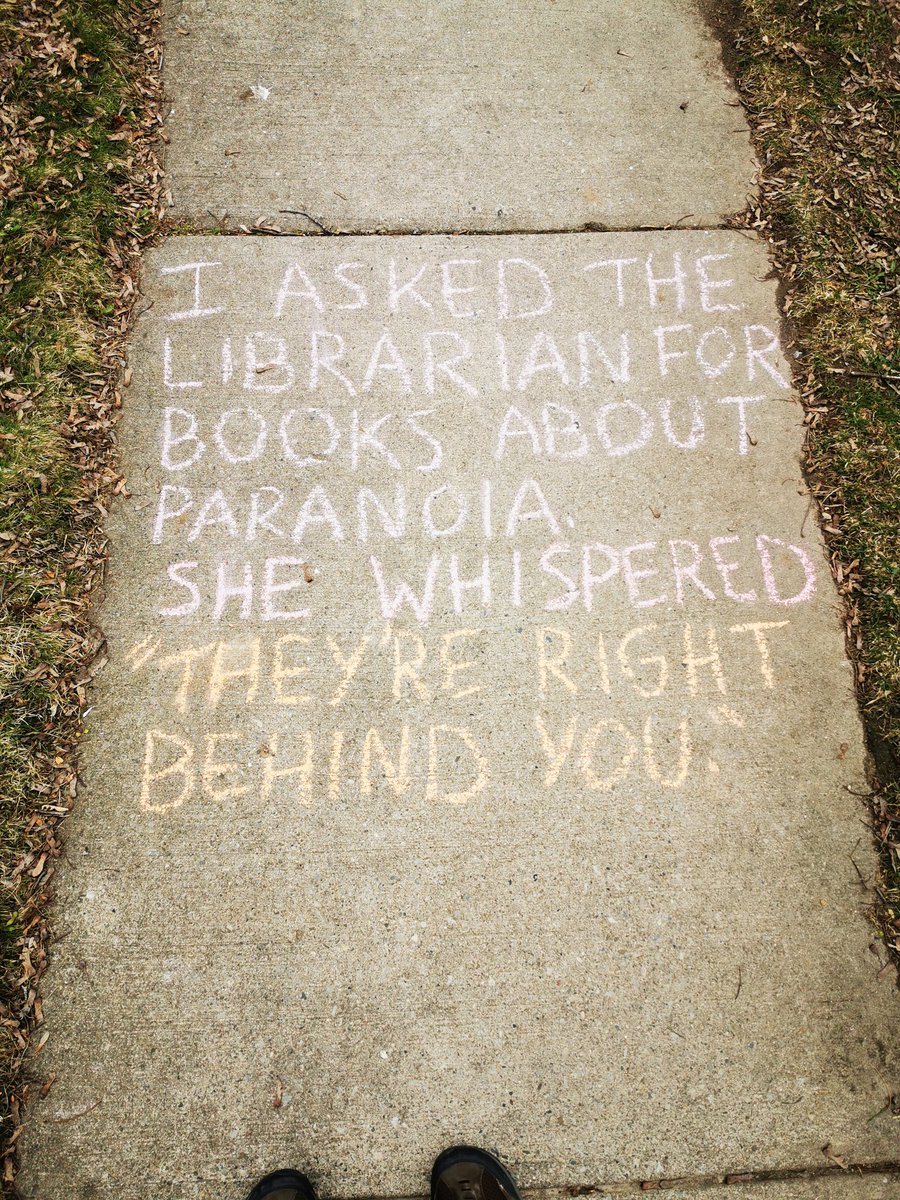 I ASKED THE
LIBRARIAN FOR
BOOKS ABOUT
PARANOIA.
SHE WHISPERED
"THEY'RE RIGHT
BEHIND YOU."